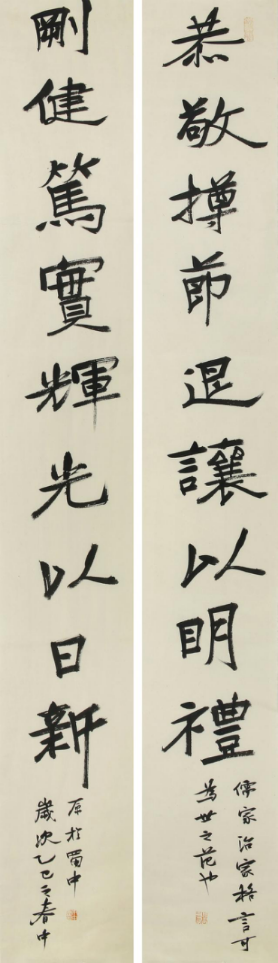 恭敬撙節退讓以明禮
儒家治家格言可
為世之范也
剛健篤實輝光以日新
歲次乙巳之春中
於蜀中